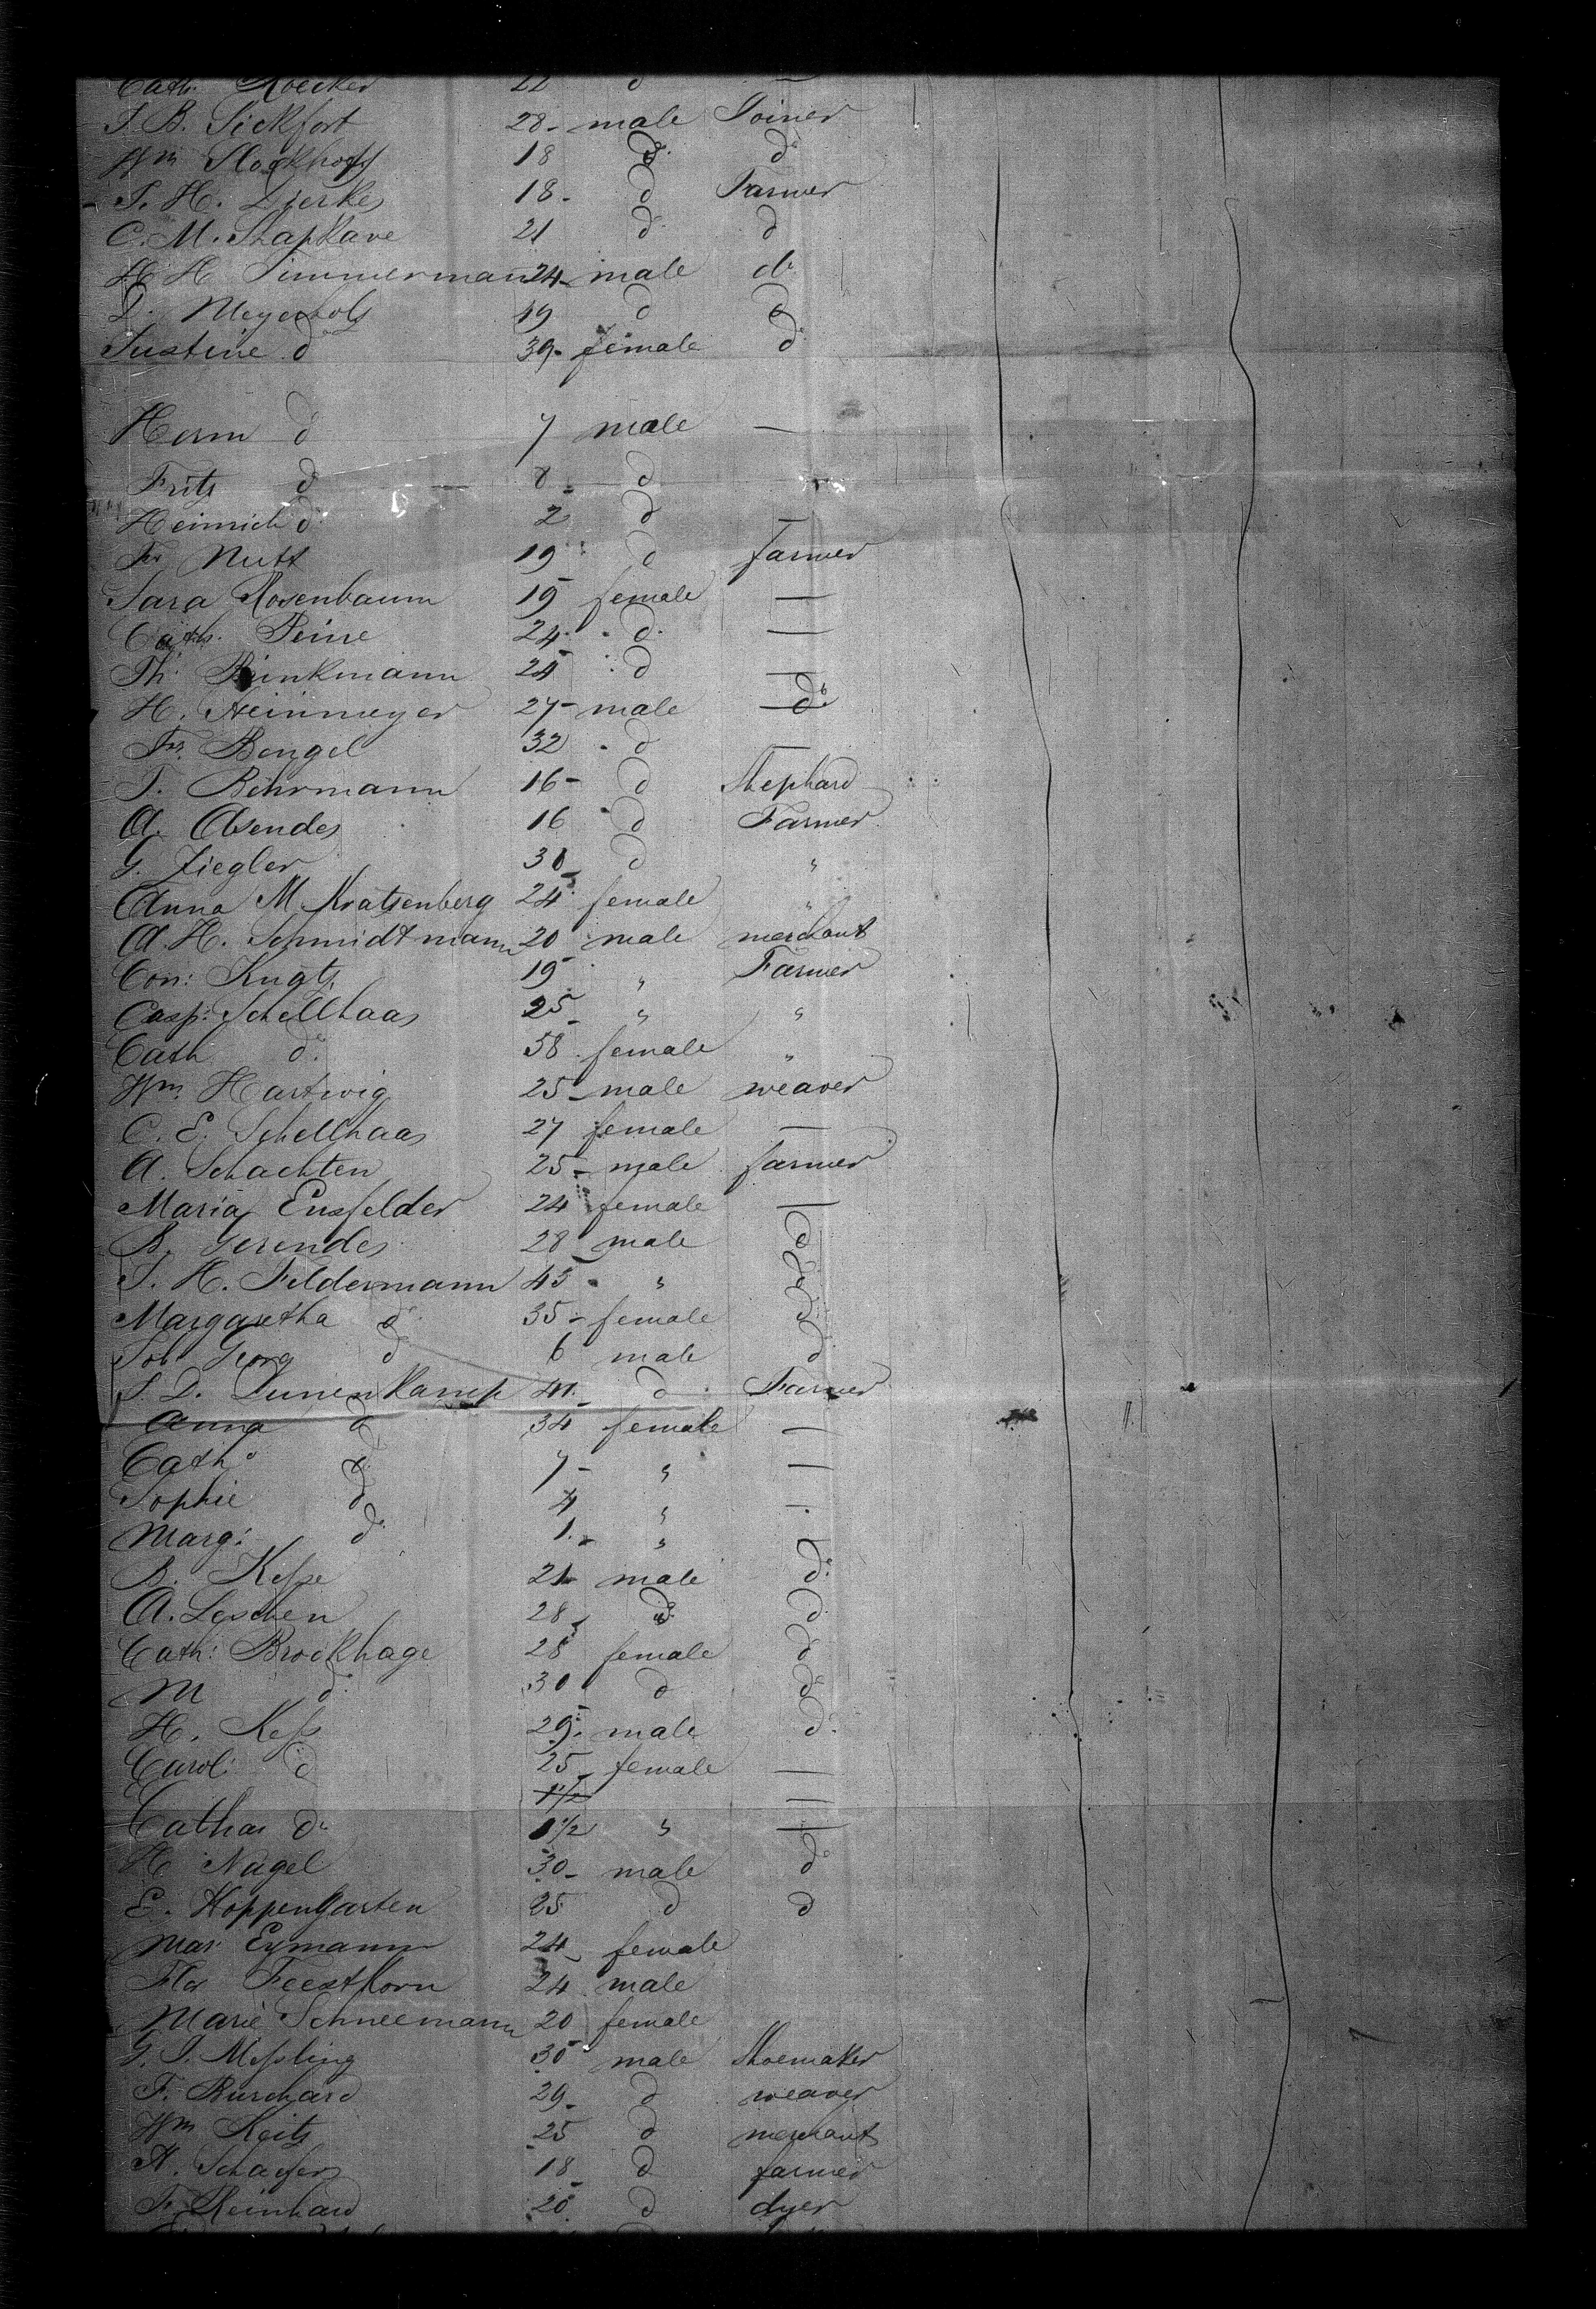 Cath: Roecker 22 d —
J. B. Sickfort 28 - male Joiner
Wm Stockhoff 18 do do
J. H. Dierkes 18 - d Farmer
C. M. Shapkave 21 d d
H H Timmerman 24 - male do
D. Meyerholz 19 d d
Justine d 39 - female d
Herm d 7 male —
Fritz d 8 - d
Heinrich d 2 d —
Fr Nutt 19 d farmer
Sara Rosenbaum 19 female —
Cath. Peine 24 d —
Th: Brinkmann 24 d —
H. Steinmeyer 27 - male do
Fr. Bengel 32 d —
J. Behrmann 16 - d Shephard
A. Asendes 16 d Farmer
G. Ziegler 30 d "
Anna M Kratzenberg 24 female "
A. H. Schmidtmann 20 male merchant
Con: Kugtz 19 " Farmer
Casp: Schellhaas 25 " "
Cath d: 58 female "
Wm. Hartwig 25 - male weaver
C. E. Schellhaas 27 female —
A. Schachten 25 - male farmer
Maria Ensfelder 24 female —
B. Gerendes 28 male d
J. H. Feldermann 45 " d
Margaretha d 35 - female d
Joh Georg d 6 male d
J. D. Dunenkamp 41 d Farmer
Anna d 34 female —
Cath d 7 - " —
Sophie d 4 " —
Marg: d 1 - " —
B. Kesse 21 male d:
A. Leschen 28 do d
Cath: Brockhage 28 female d
M d: 30 d d
H. Kess 29 male d
Carol: d 25 female —
1 1/2 —
Cathar do 1 1/2 " —
H Nagel 30 - male do
E. Hoppengarten 25 d d
Mar: Eymann 24 female
Flor Feesthorn 24 male
Marie Schneemann 20 female
G. J. Messling 30 male Shoemaker
F. Burchard 29 - d weaver
Wm Reitz 25 d merchant
A. Schaefer 18 d farmer
F. Reinhard 20 d dyer